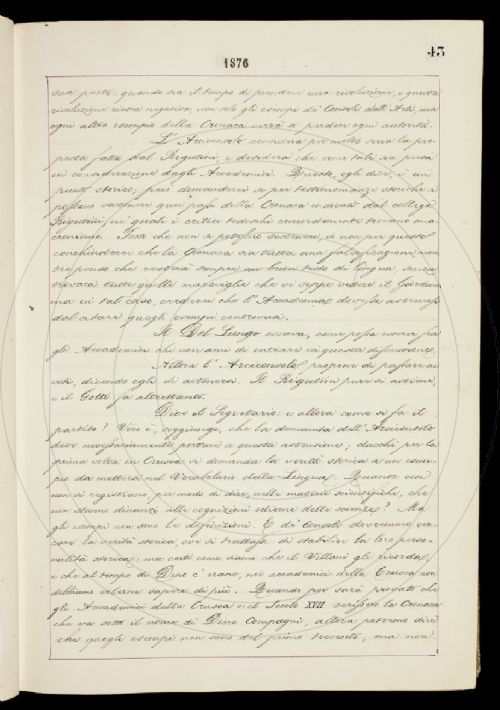 43
1876
sua parte: quando sia il tempo di prendere una risoluzione, e questa
risoluzione riesca negativa, non solo gli esempi de' Consoli dell'Arti, ma
ogni altro esempio della Cronaca verrà a perdere ogni autorità.
L'Arciconsolo considera per molto seria la pro-
posta fatta dal Rigutini, e desidera che essa sia presa
in considerazione dagli Accademici. Questo, egli dice, è un
punto storico; però domanderei se per testimonianze storiche si
possano sostenere quei passi della Cronaca indicati dal collega
Rigutini, ne' quali i critici tedeschi concordemente trovano una
Posto che non si potesse sostenere, io non per questo
conchiuderei che la Cronaca sia tutta una falsificazione, non
che resterà sempre un buon testo di lingua, senza
trovarci tutte quelle maraviglie che vi seppe vedere il Giordani
ma in tal caso, crederei che l'Accademia dovesse astenersi
dal citare quegli esempi controversi.
Il Del Lungo osserva, come possa esservi fra
gli Accademici chi non ami di entrare in questa discussione.
Allora l'Arciconsolo propone di passare ai
voti, dicendo egli di astenersi. Il Rigutini pure si astiene,
e il Gotti fa altrettanto.
Dice il Segretario: e allora come si fa il
partito? Vero è, soggiunge, che la domanda dell'Arciconsolo
deve necessariamente portare a questa astensione; dacchè per la
prima volta in Crusca si domanda la verità storica a un esem-
pio da mettersi nel Vocabolario della Lingua. Quanto
non si registrano, per modo di dire, nelle materie scientifiche, che
non stanno dinanzi alle cognizioni odierne delle scienze? Ma
gli esempi non sono le definizioni. E de' Consoli dovremmo cer-
care la verità storica, ove si trattasse di stabilire la loro perso-
nalità storica; ma certi come siamo che il Villani gli ricorda,
e che al tempo di Dino c'erano, noi accademici della Crusca non
dobbiamo volerne sapere di più. Quando poi sarà provato che
gli Accademici della Crusca nel Secolo XVII scrissero la Cronaca
che va sotto il nome di Dino Compagni, allora potremo dire
che quegli esempi non sono del primo trecento; ma non